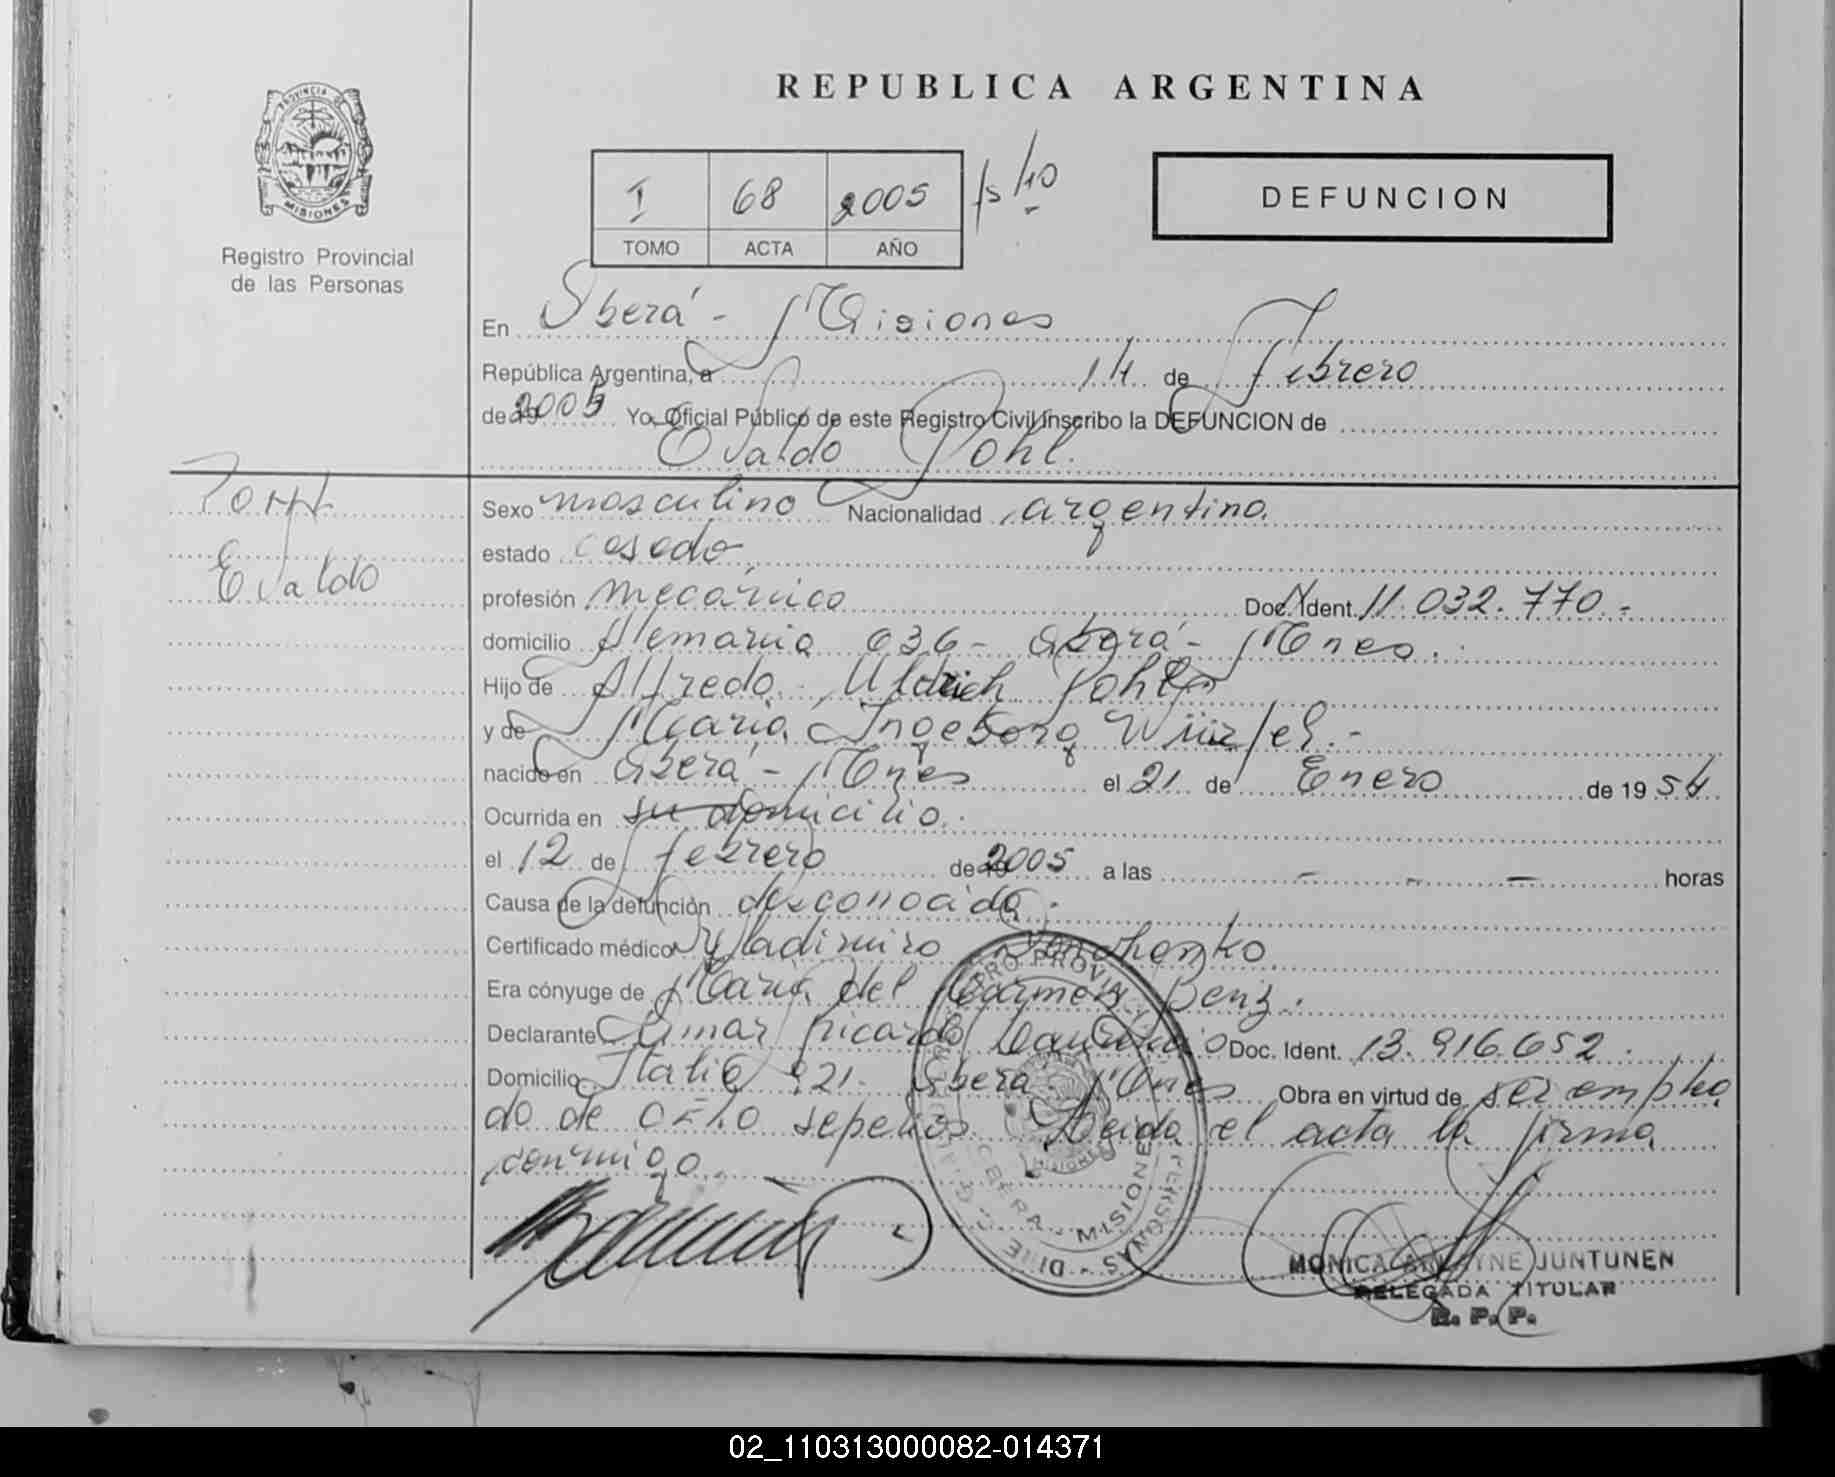 REPUBLICA ARGENTINA
PROVINCIA DE
MISIONES
Registro Provincial
de las Personas
I 68 2005 fs/10
TOMO ACTA AÑO
DEFUNCION
En Oberá - Misiones
República Argentina, a 14 de Febrero
de 19 2005 Yo, Oficial Público de este Registro Civil inscribo la DEFUNCION de
Evaldo Pohl.
Pohl
Evaldo
Sexo masculino Nacionalidad argentino.
estado casado
profesión mecánico Doc. Ident. 11.032.770.-
domicilio Alemania 036 - Oberá - Mnes.
Hijo de Alfredo Uldrich Pohl
y de Maria Ingeborg Würfel.-
nacido en Oberá - Mnes el 21 de Enero de 19 54
Ocurrida en su domicilio.
el 12 de febrero de 19 2005 a las - - - horas
Causa de la defunción desconocida.
Certificado médico Vladimiro
Era cónyuge de Maria del Carmen Benz.
Declarante Omar Ricardo Doc. Ident. 13.916.652.
Domicilio Italia 921. Oberá - Mnes Obra en virtud de ser emplea
do de sepelios Leida el acta la firma
conmigo.
OBERA - MISIONES
MONICA JUNTUNEN
DELEGADA TITULAR
R. P. P.
02_110313000082-014371